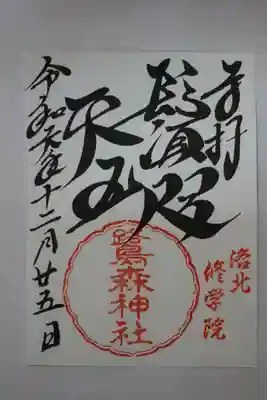 奉拝
洛北
修学院
鬚咫
天王
鷺森神社
令和元年十二月廿五日